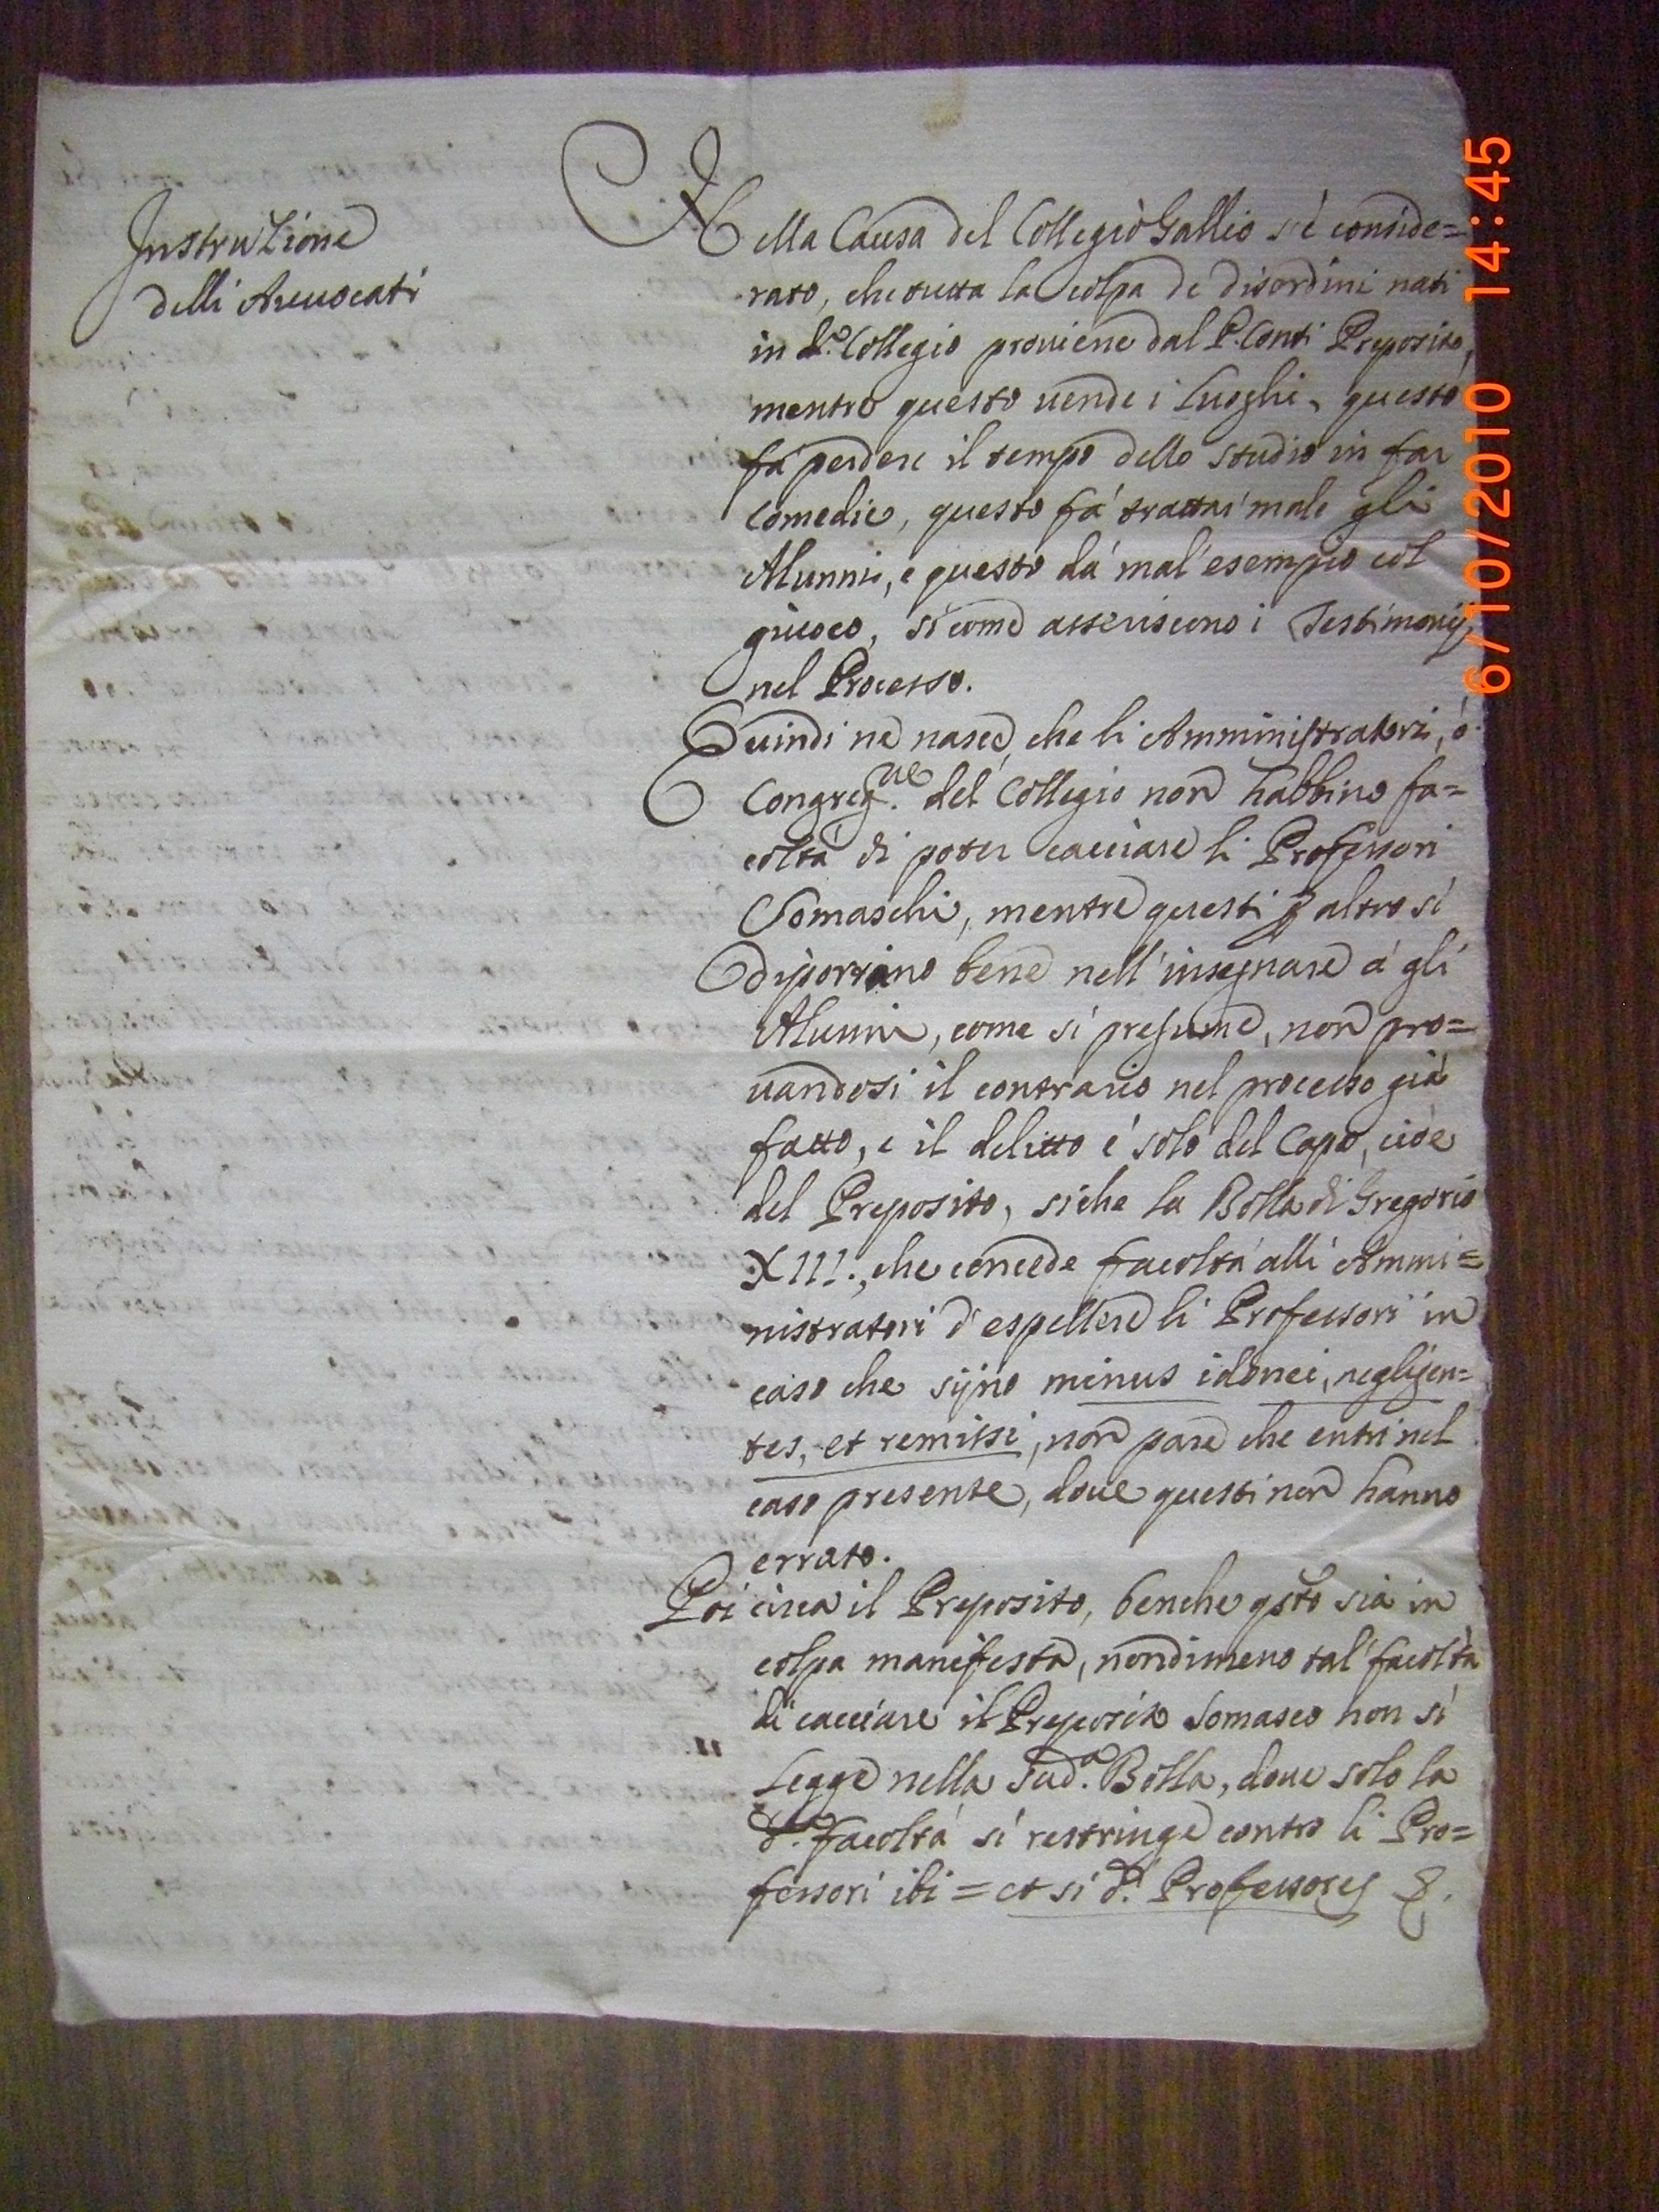 Instruzione
delli Auuocati
Nella Causa del Collegio Gallio s'è conside=
rato, che tutta la colpa de disordini nati
in d.º Collegio prouiene dal P. Conti Preposito,
mentre questo uende i Luoghi, questo
fà perdere il tempo dello studio in far
Comedie, questo fà trattar male gli
Alunni, e questo dà mal'esempio col
giuoco, si come asseriscono i Testimonij
nel Processo.
Quindi ne nasce, che li Amministratori, ò
Congreg.ne del Collegio non habbino fa=
coltà di poter cacciare li Professori
Somaschi, mentre questi p altro si
diportano bene nell'insegnare à gli
Alunni, come si presume, non pro=
uandosi il contrario nel processo già
fatto, e il delitto è solo del Capo, cioè
del Preposito, siche la Bolla di Gregorio
XIII., che concede facoltà alli Ammi=
nistratori d'espellere li Professori in
caso che sijno minus idonei, negligen=
tes, et remissi, non pare che entri nel
caso presente, doue questi non hanno
errato.
Poi circa il Preposito, benche qsto sia in
colpa manifesta, nondimeno tal facoltà
di cacciare il Preposito Somasco non si
Legge nella Sud.a Bolla, doue solo la
d.a facoltà si restringe contro li Pro=
fessori ibi = et si d.i Professores &.
6/10/2010 14:45